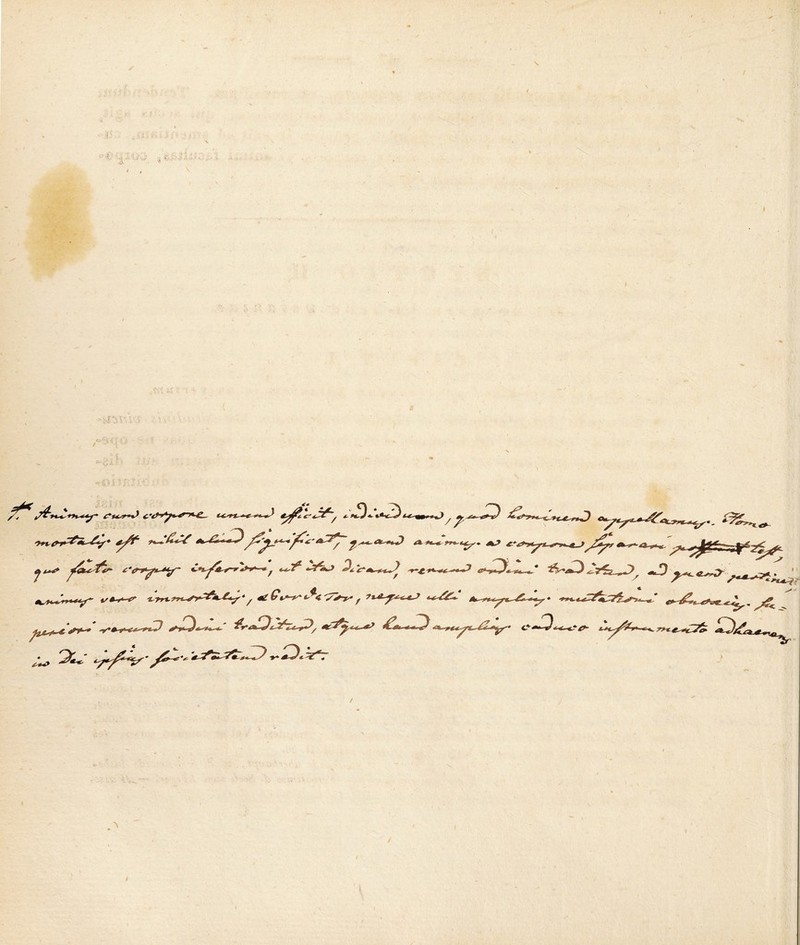 7.* Animus cum corpore unum efficit, individuum, quod hominem appellamus. Homo
mortalis est nihil aliud significat, quam animus a corpore separari potest,
quo facto corpus inferiori, ut ita dicam, rerum ordini traditur, ad quem pertinet;
animus vero immortalis, neque ulli amplius mutationi obnoxius, su-
periori rerum ordini traditur, atque haud amplius caduco instrumento adhaerens
in Dei ipsius societatem redit.